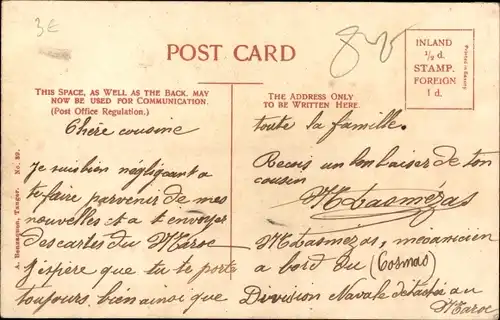 3€
POST CARD
THIS SPACE, AS WELL AS THE BACK, MAY
NOW BE USED FOR COMMUNICATION.
(Post Office Regulation.)
THE ADDRESS ONLY
TO BE WRITTEN HERE.
INLAND
½ d.
STAMP.
FOREIGN
1 d.
Printed in Saxony
A. Benzaquen, Tanger. No. 39.
Chère cousine
Je suis bien négligeant a
te faire parvenir de mes
nouvelles et a t envoyer
des cartes du Maroc
J'espère que tu te porte
toujours bien ainsi que
toute la famille.
Recois un bon baiser de ton
cousin
M Lasmézas
M Lasmézas, mécanicien
a bord du (Cosmao)
Division Navale détachée au
Maroc